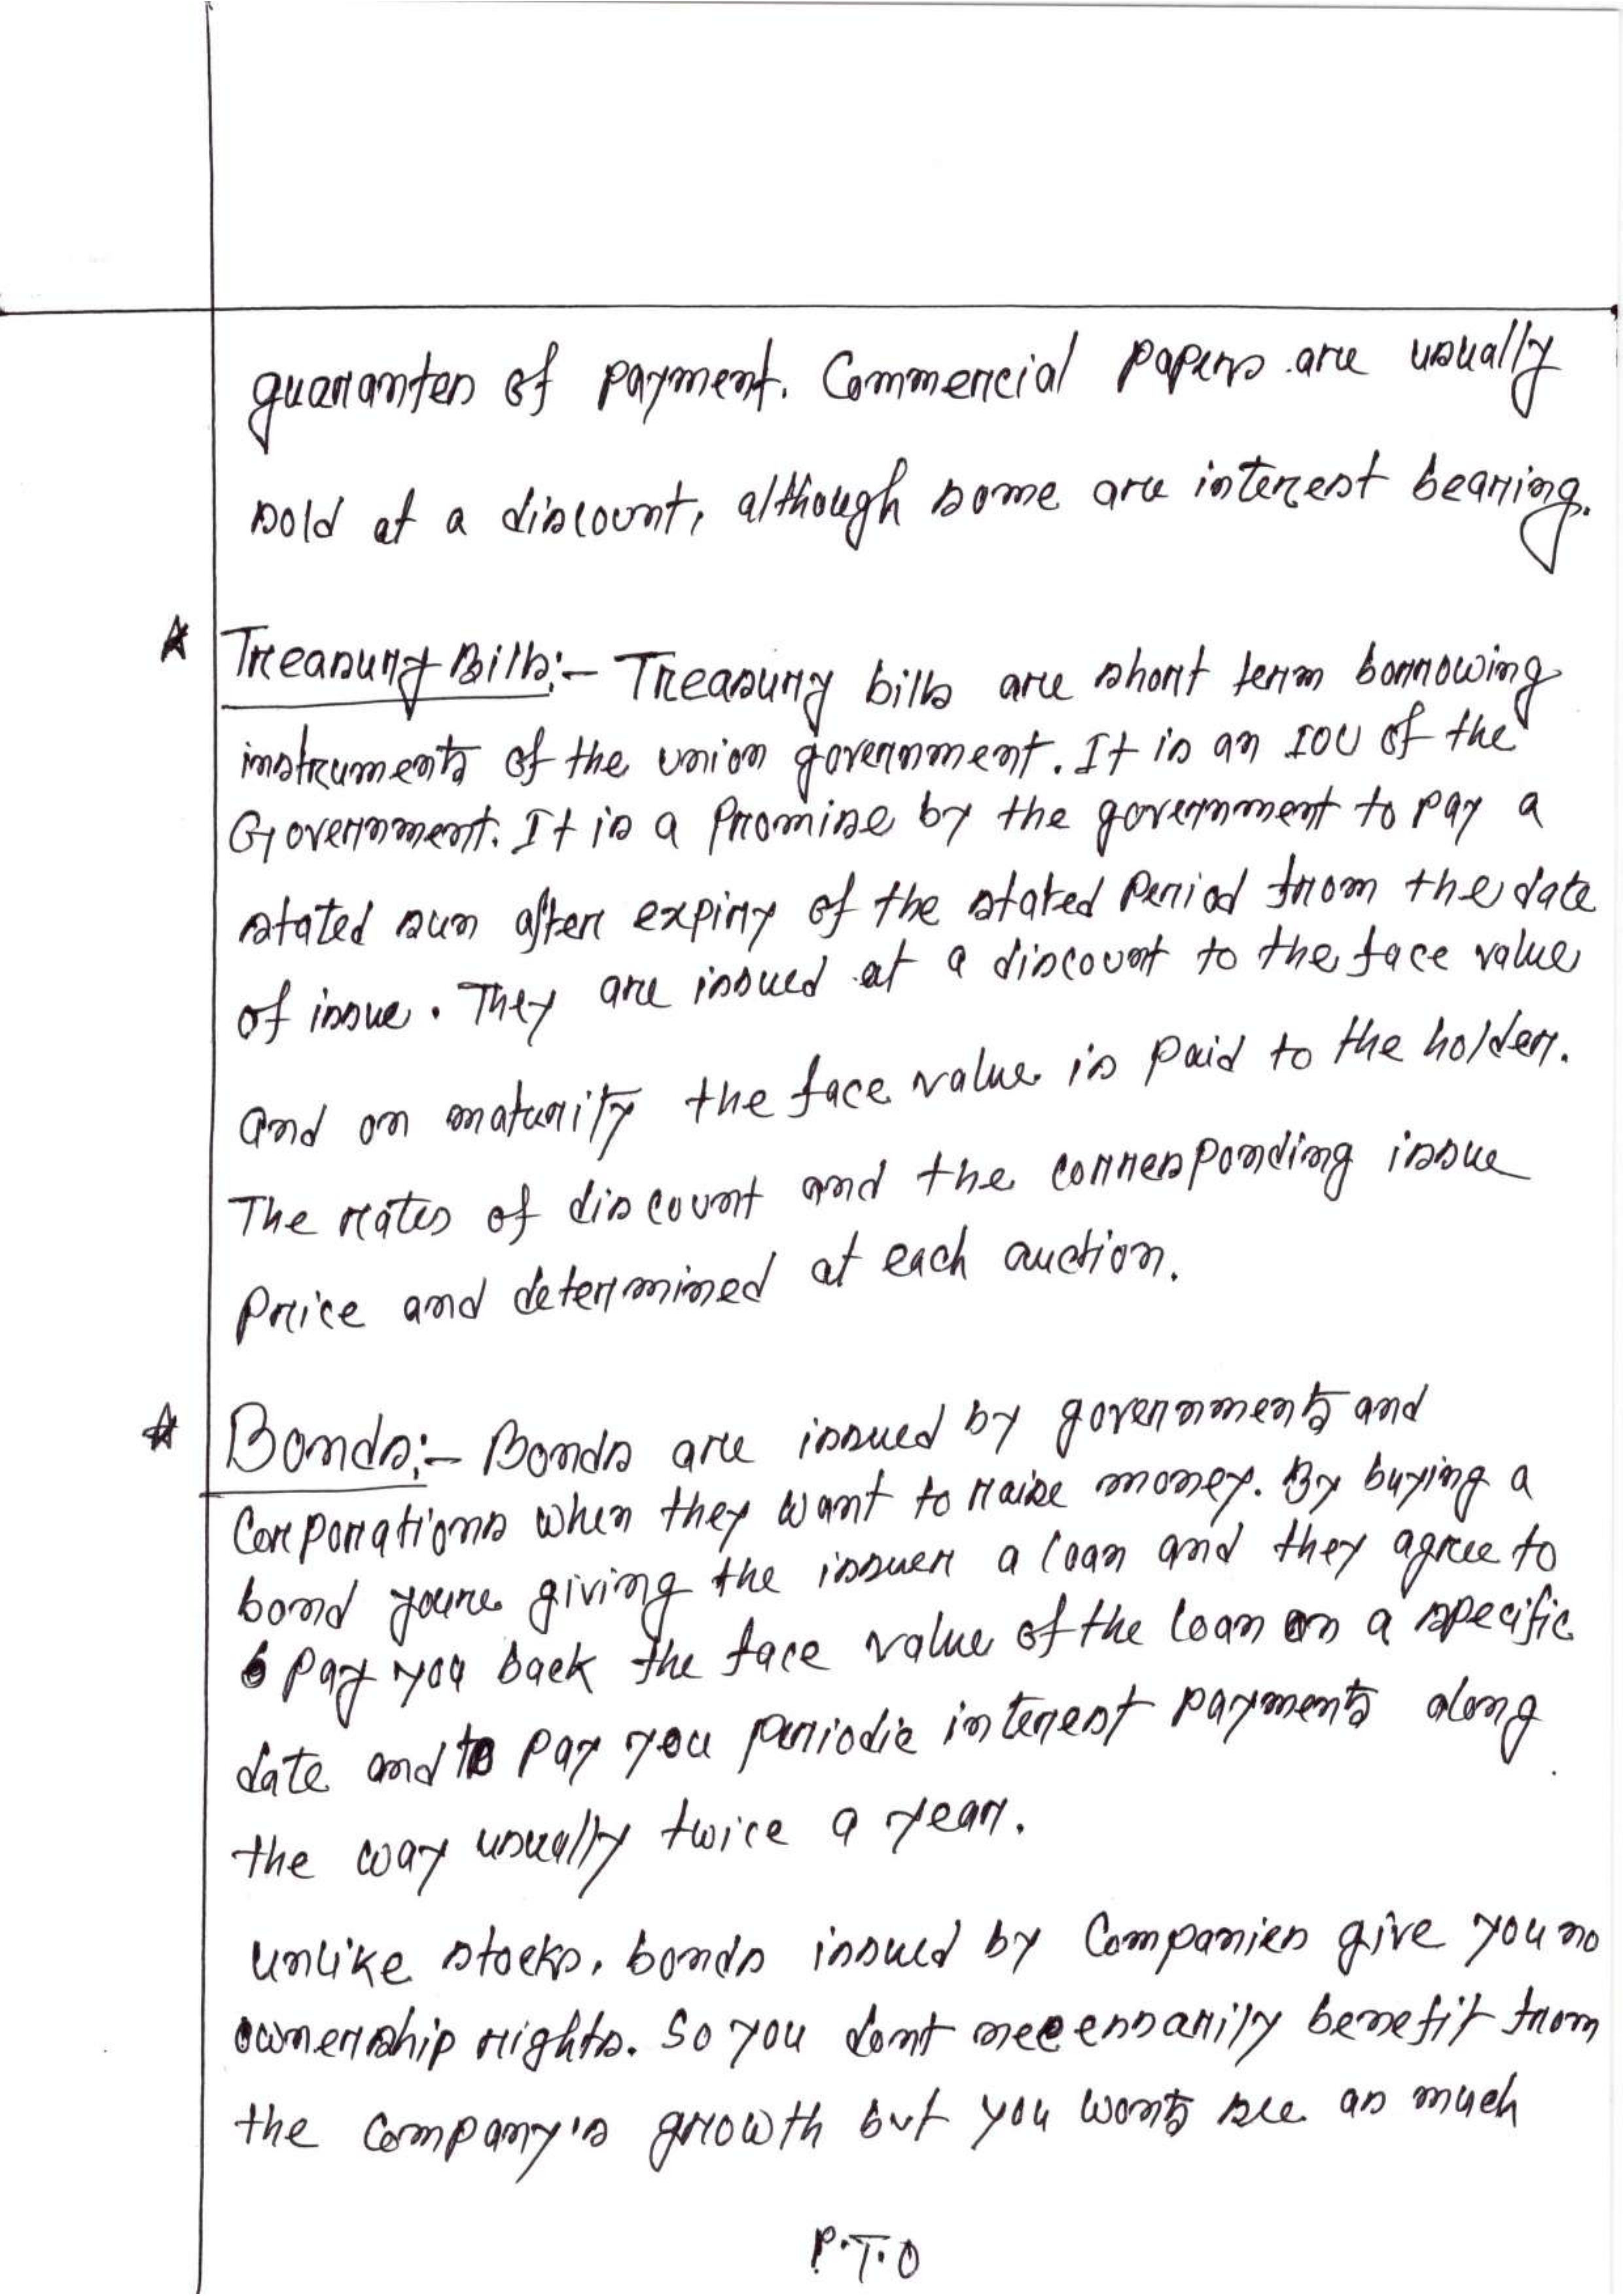 guarantes of payment. Commercial papers are usually
sold at a discount, although some are interest bearing.
★ Treasury Bills:- Treasury bills are short term borrowing
instruments of the union government. It is an IOU of the
Government. It is a Promise by the government to pay a
stated sum after expiry of the stated Period from the date
of issue. They are issued at a discount to the face value
and on maturity the face value is paid to the holder.
The rates of discount and the corresponding issue
price and determined at each auction.
★ Bonds:- Bonds are issued by governments and
Corporations when they want to raise money. By buying a
bond youre giving the issuer a loan and they agree to
Pay you back the face value of the loan on a specific
date and to pay you periodic interest payments along
the way usually twice a year.
unlike stocks, bonds issued by Companies give you no
ownership rights. So you dont necessarily benefit from
the Company's growth but you wonts see as much
P.T.O